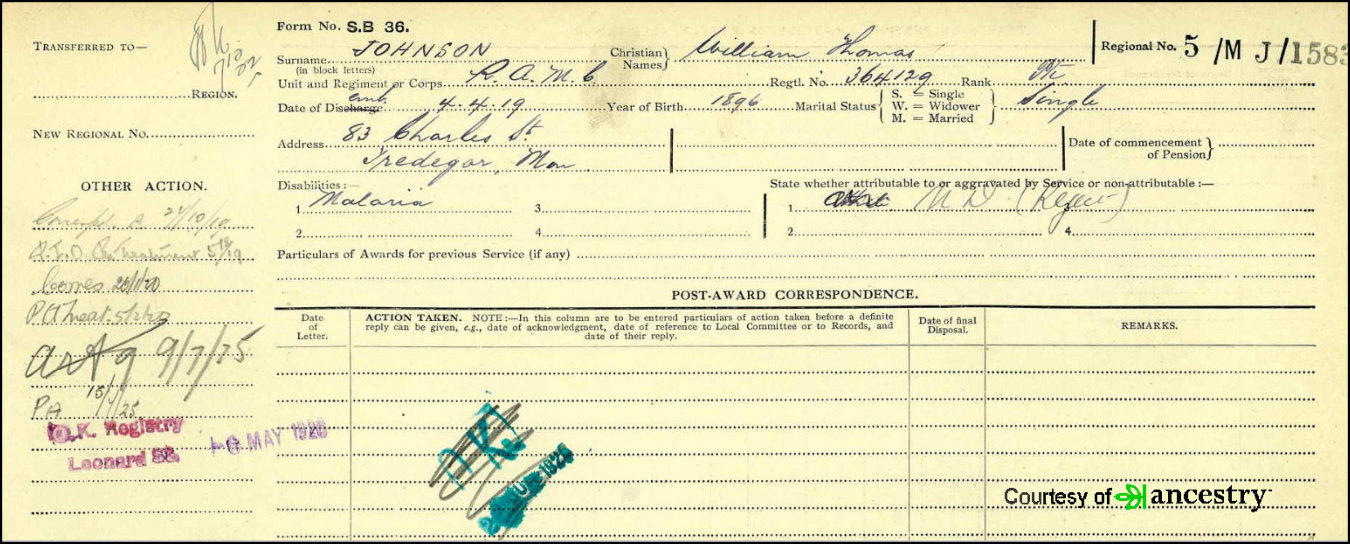 Form No. S.B 36.
TRANSFERRED TO—
REGION.
NEW REGIONAL No.
OTHER ACTION.
27/10/19
Treatment
PA treat.
9/7/25
PA
O.K. Registry
Leonard St.
MAY 1926
Surname JOHNSON
(in block letters)
Christian Names} William Thomas
Regional No. 5/MJ/1583
Unit and Regiment or Corps. R.A.M.C
Regtl. No. 364129 Rank Pte
Date of Discharge emb. 4.4.19 Year of Birth 1896 Marital Status { S. = Single
W. = Widower
M. = Married } Single
Address 83 Charles St
Tredegar, Mon
Date of commencement
of Pension}
Disabilities :—
State whether attributable to or aggravated by Service or non-attributable :—
1 Malaria 3. 1. N D (Reject)
2. 4. 2. 4.
Particulars of Awards for previous Service (if any)
POST-AWARD CORRESPONDENCE.
Date
of
Letter.
ACTION TAKEN. NOTE :—In this column are to be entered particulars of action taken before a definite
reply can be given, e.g., date of acknowledgment, date of reference to Local Committee or to Records, and
date of their reply.
Date of final
Disposal.
REMARKS.
1926
Courtesy of ancestry